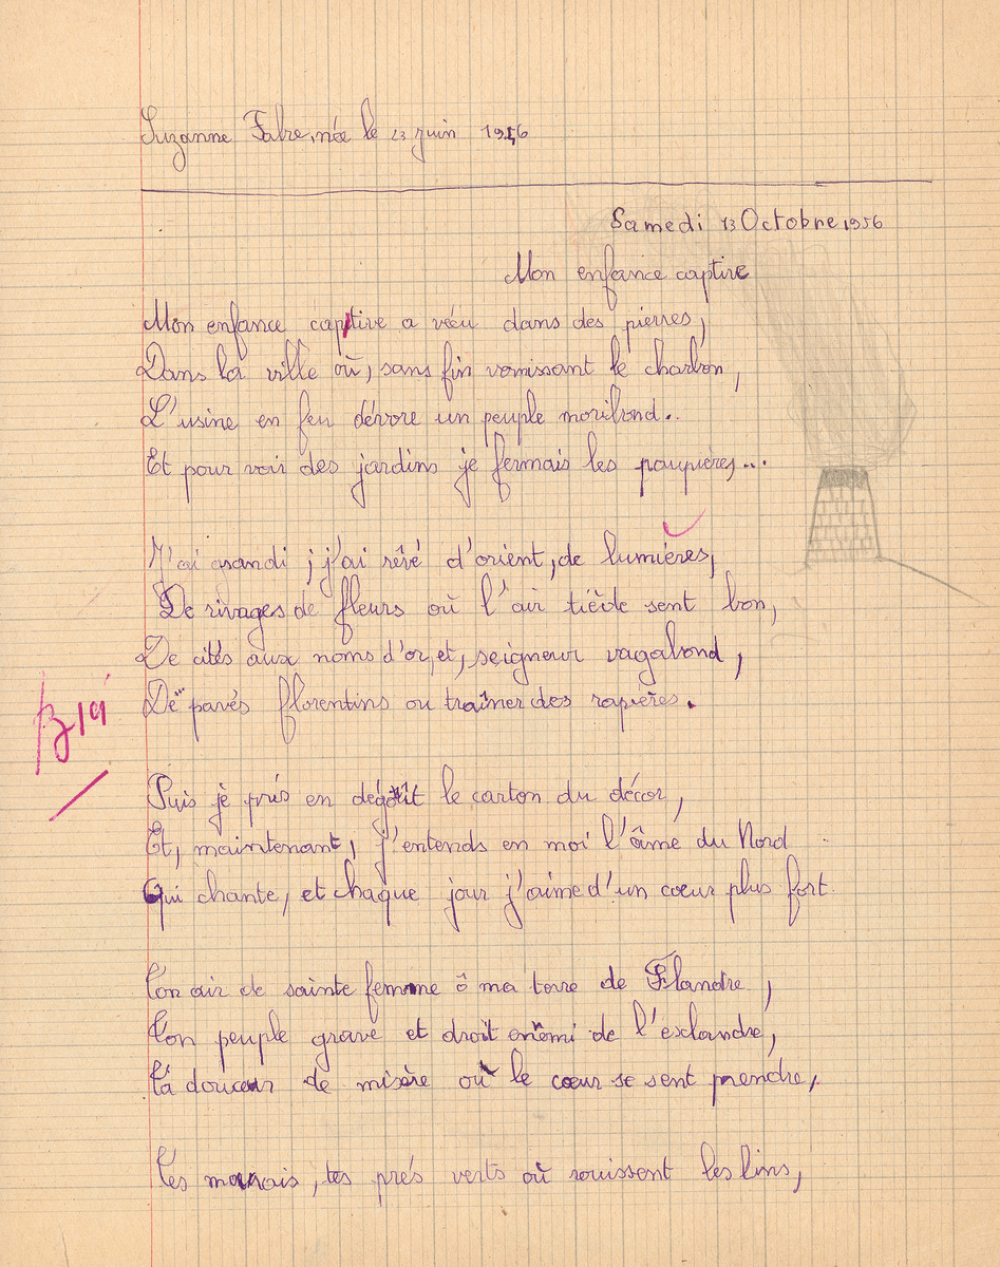 Suzanne Fabre, née le 23 juin 1946
Samedi 13 Octobre 1956
Mon enfance captive
Mon enfance captive a vécu dans des pierres,
Dans la ville où, sans fin vomissant le charbon,
L'usine en feu dévore un peuple moribond..
Et pour voir des jardins je fermais les paupières...
J'ai grandi ; j'ai rêvé d'orient, de lumières,
De rivages de fleurs où l'air tiède sent bon,
De cités aux noms d'or, et, seigneur vagabond,
De pavés florentins ou traîner des rapières.
B 19
Puis je pris en dégoût le carton du décor,
Et, maintenant, j'entends en moi l'âme du Nord
Qui chante, et chaque jour j'aime d'un cœur plus fort
Ton air de sainte femme ô ma terre de Flandre,
Ton peuple grave et droit enemi de l'esclandre,
Ta douceur de misère où le cœur se sent prendre,
Tes marais, tes prés verts où rouissent les lins,